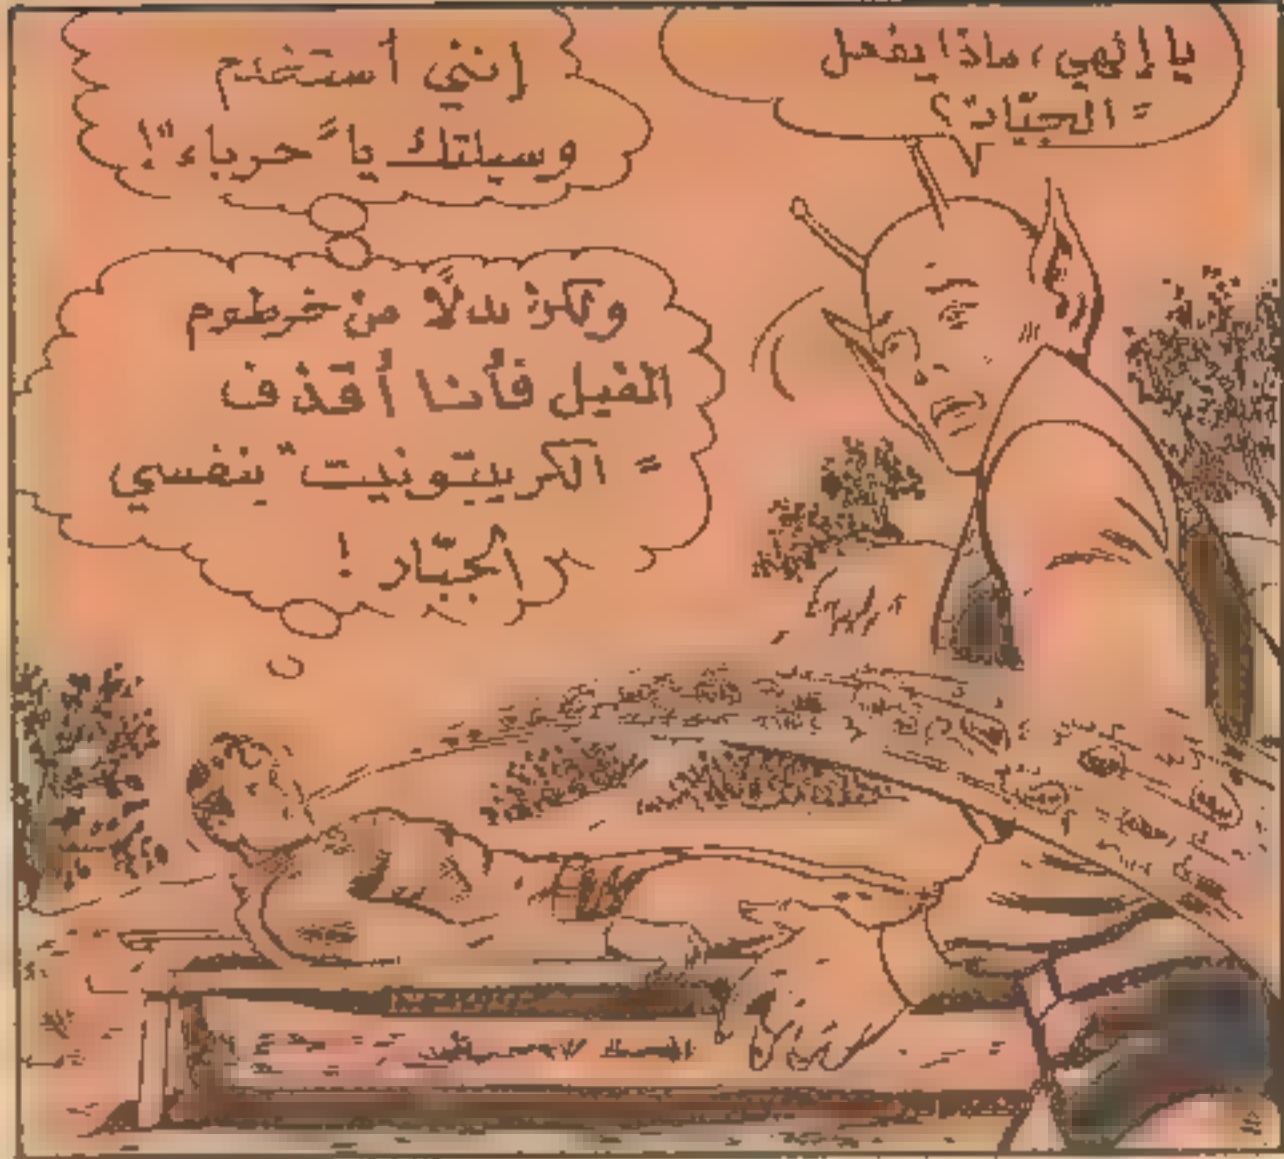 يا إلهي، ماذا يفعل
"الجبّار"؟
إنني أستخدم
وسيلتك يا "حرباء"!
ولكن بدلًا من خرطوم
الفيل فأنا أقذف
"الكريبتونيت" بنفسي
الجبّار!